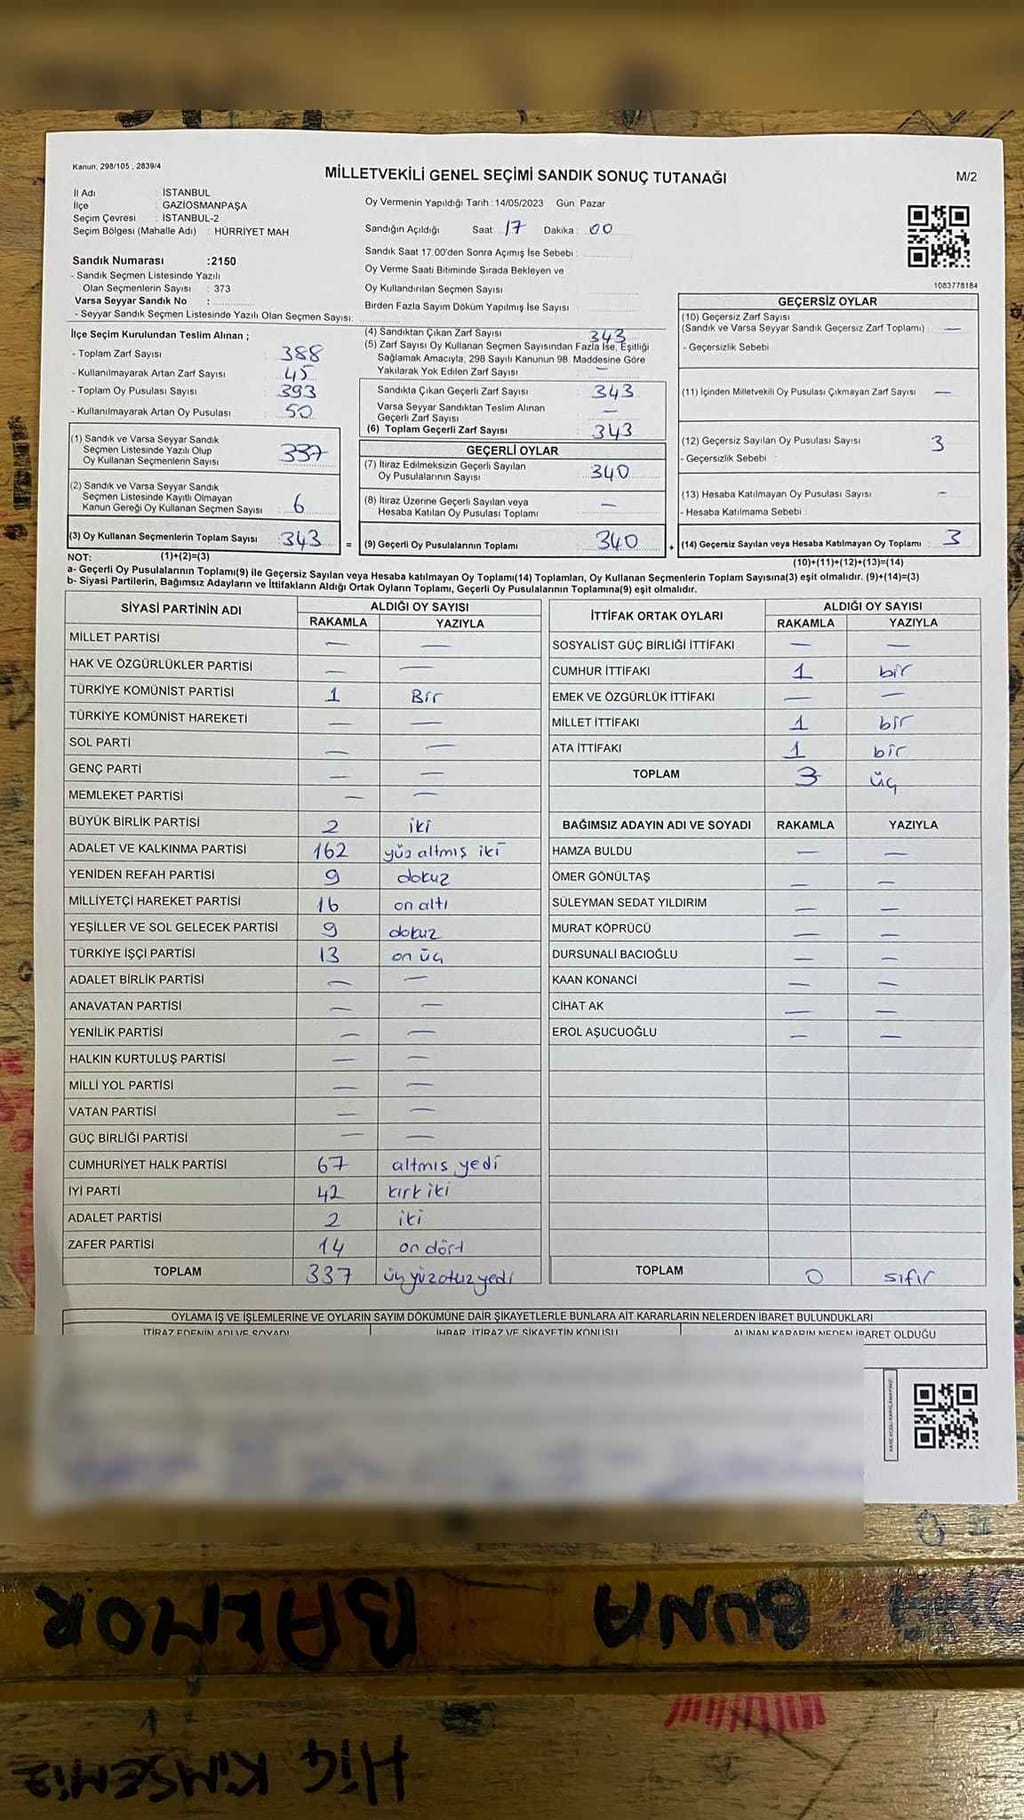 Kanun: 298/105 , 2839/4
MİLLETVEKİLİ GENEL SEÇİMİ SANDIK SONUÇ TUTANAĞI
M/2
İl Adı : İSTANBUL
İlçe : GAZİOSMANPAŞA
Seçim Çevresi : İSTANBUL-2
Seçim Bölgesi (Mahalle Adı) : HÜRRİYET MAH
Oy Vermenin Yapıldığı Tarih :14/05/2023 Gün: Pazar
Sandığın Açıldığı Saat : 17 Dakika : 00
Sandık Saat 17.00'den Sonra Açımış İse Sebebi :
Oy Verme Saati Bitiminde Sırada Bekleyen ve
Oy Kullandırılan Seçmen Sayısı
Birden Fazla Sayım Döküm Yapılmış İse Sayısı
Sandık Numarası :2150
- Sandık Seçmen Listesinde Yazılı
Olan Seçmen Sayısı : 373
Varsa Seyyar Sandık No :
- Seyyar Sandık Seçmen Listesinde Yazılı Olan Seçmen Sayısı:
1083778184
İlçe Seçim Kurulundan Teslim Alınan ;
- Toplam Zarf Sayısı 388
- Kullanılmayarak Artan Zarf Sayısı : 45
- Toplam Oy Pusulası Sayısı : 393
- Kullanılmayarak Artan Oy Pusulası : 50
(1) Sandık ve Varsa Seyyar Sandık
Seçmen Listesinde Yazılı Olup
Oy Kullanan Seçmenlerin Sayısı : 337
(2) Sandık ve Varsa Seyyar Sandık
Seçmen Listesinde Kayıtlı Olmayan
Kanun Gereği Oy Kullanan Seçmen Sayısı : 6
(3) Oy Kullanan Seçmenlerin Toplam Sayısı : 343 =
(4) Sandıktan Çıkan Zarf Sayısı 343
(5) Zarf Sayısı Oy Kullanan Seçmen Sayısından Fazla İse, Eşitliği
Sağlamak Amacıyla, 298 Sayılı Kanunun 98. Maddesine Göre
Yakılarak Yok Edilen Zarf Sayısı : —
Sandıkta Çıkan Geçerli Zarf Sayısı : 343
Varsa Seyyar Sandıktan Teslim Alınan
Geçerli Zarf Sayısı —
(6) Toplam Geçerli Zarf Sayısı : 343
GEÇERLİ OYLAR
(7) İtiraz Edilmeksizin Geçerli Sayılan
Oy Pusulalarının Sayısı : 340
(8) İtiraz Üzerine Geçerli Sayılan veya
Hesaba Katılan Oy Pusulası Toplamı —
(9) Geçerli Oy Pusulalarının Toplamı : 340 +
GEÇERSİZ OYLAR
(10) Geçersiz Zarf Sayısı
(Sandık ve Varsa Seyyar Sandık Geçersiz Zarf Toplamı) : —
- Geçersizlik Sebebi :
(11) İçinden Milletvekili Oy Pusulası Çıkmayan Zarf Sayısı : —
(12) Geçersiz Sayılan Oy Pusulası Sayısı : 3
- Geçersizlik Sebebi :
(13) Hesaba Katılmayan Oy Pusulası Sayısı : -
- Hesaba Katılmama Sebebi :
(14) Geçersiz Sayılan veya Hesaba Katılmayan Oy Toplamı : 3
NOT: (1)+(2)=(3)
(10)+(11)+(12)+(13)=(14)
a- Geçerli Oy Pusulalarının Toplamı(9) ile Geçersiz Sayılan veya Hesaba katılmayan Oy Toplamı(14) Toplamları, Oy Kullanan Seçmenlerin Toplam Sayısına(3) eşit olmalıdır. (9)+(14)=(3)
b- Siyasi Partilerin, Bağımsız Adayların ve İttifakların Aldığı Ortak Oyların Toplamı, Geçerli Oy Pusulalarının Toplamına(9) eşit olmalıdır.
SİYASİ PARTİNİN ADI ALDIĞI OY SAYISI
RAKAMLA YAZIYLA
MİLLET PARTİSİ — —
HAK VE ÖZGÜRLÜKLER PARTİSİ — —
TÜRKİYE KOMÜNİST PARTİSİ 1 Bir
TÜRKİYE KOMÜNİST HAREKETİ — —
SOL PARTİ — —
GENÇ PARTİ — —
MEMLEKET PARTİSİ — —
BÜYÜK BİRLİK PARTİSİ 2 iki
ADALET VE KALKINMA PARTİSİ 162 yüz altmış iki
YENİDEN REFAH PARTİSİ 9 dokuz
MİLLİYETÇİ HAREKET PARTİSİ 16 on altı
YEŞİLLER VE SOL GELECEK PARTİSİ 9 dokuz
TÜRKİYE İŞÇİ PARTİSİ 13 on üç
ADALET BİRLİK PARTİSİ — —
ANAVATAN PARTİSİ — —
YENİLİK PARTİSİ — —
HALKIN KURTULUŞ PARTİSİ — —
MİLLİ YOL PARTİSİ — —
VATAN PARTİSİ — —
GÜÇ BİRLİĞİ PARTİSİ — —
CUMHURİYET HALK PARTİSİ 67 altmış yedi
İYİ PARTİ 42 kırk iki
ADALET PARTİSİ 2 iki
ZAFER PARTİSİ 14 on dört
TOPLAM 337 üç yüz otuz yedi
İTTİFAK ORTAK OYLARI ALDIĞI OY SAYISI
RAKAMLA YAZIYLA
SOSYALİST GÜÇ BİRLİĞİ İTTİFAKI — —
CUMHUR İTTİFAKI 1 bir
EMEK VE ÖZGÜRLÜK İTTİFAKI — —
MİLLET İTTİFAKI 1 bir
ATA İTTİFAKI 1 bir
TOPLAM 3 üç
BAĞIMSIZ ADAYIN ADI VE SOYADI RAKAMLA YAZIYLA
HAMZA BULDU — —
ÖMER GÖNÜLTAŞ — —
SÜLEYMAN SEDAT YILDIRIM — —
MURAT KÖPRÜCÜ — —
DURSUNALİ BACIOĞLU — —
KAAN KONANCI — —
CİHAT AK — —
EROL AŞUCUOĞLU — —
TOPLAM 0 sıfır
OYLAMA İŞ VE İŞLEMLERİNE VE OYLARIN SAYIM DÖKÜMÜNE DAİR ŞİKAYETLERLE BUNLARA AİT KARARLARIN NELERDEN İBARET BULUNDUKLARI
İTİRAZ EDENİN ADI VE SOYADI İHBAR, İTİRAZ VE ŞİKAYETİN KONUSU ALINAN KARARIN NEDEN İBARET OLDUĞU
BUNA BAKMIYOR
HİÇ KİMSEMİZ